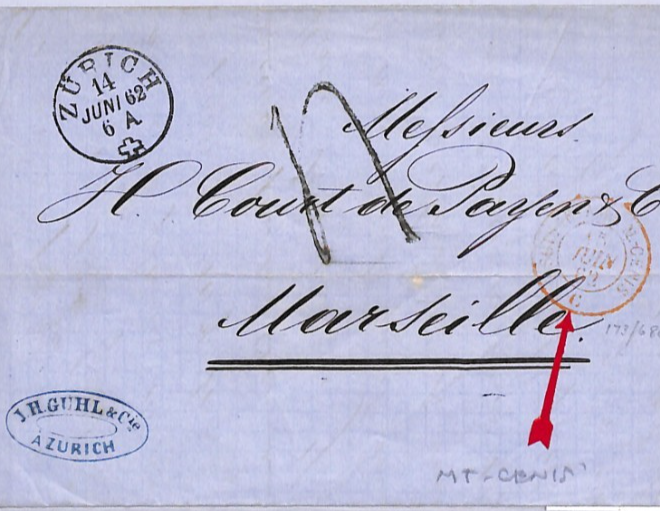 ZÜRICH
14
JUNI 62
6 A
Messieurs
H. Court de Payen & C
Marseille.
JUIN
62
M-CENIS
173/68
J. H. GUHL & Cie
A ZURICH
MT-CENIS